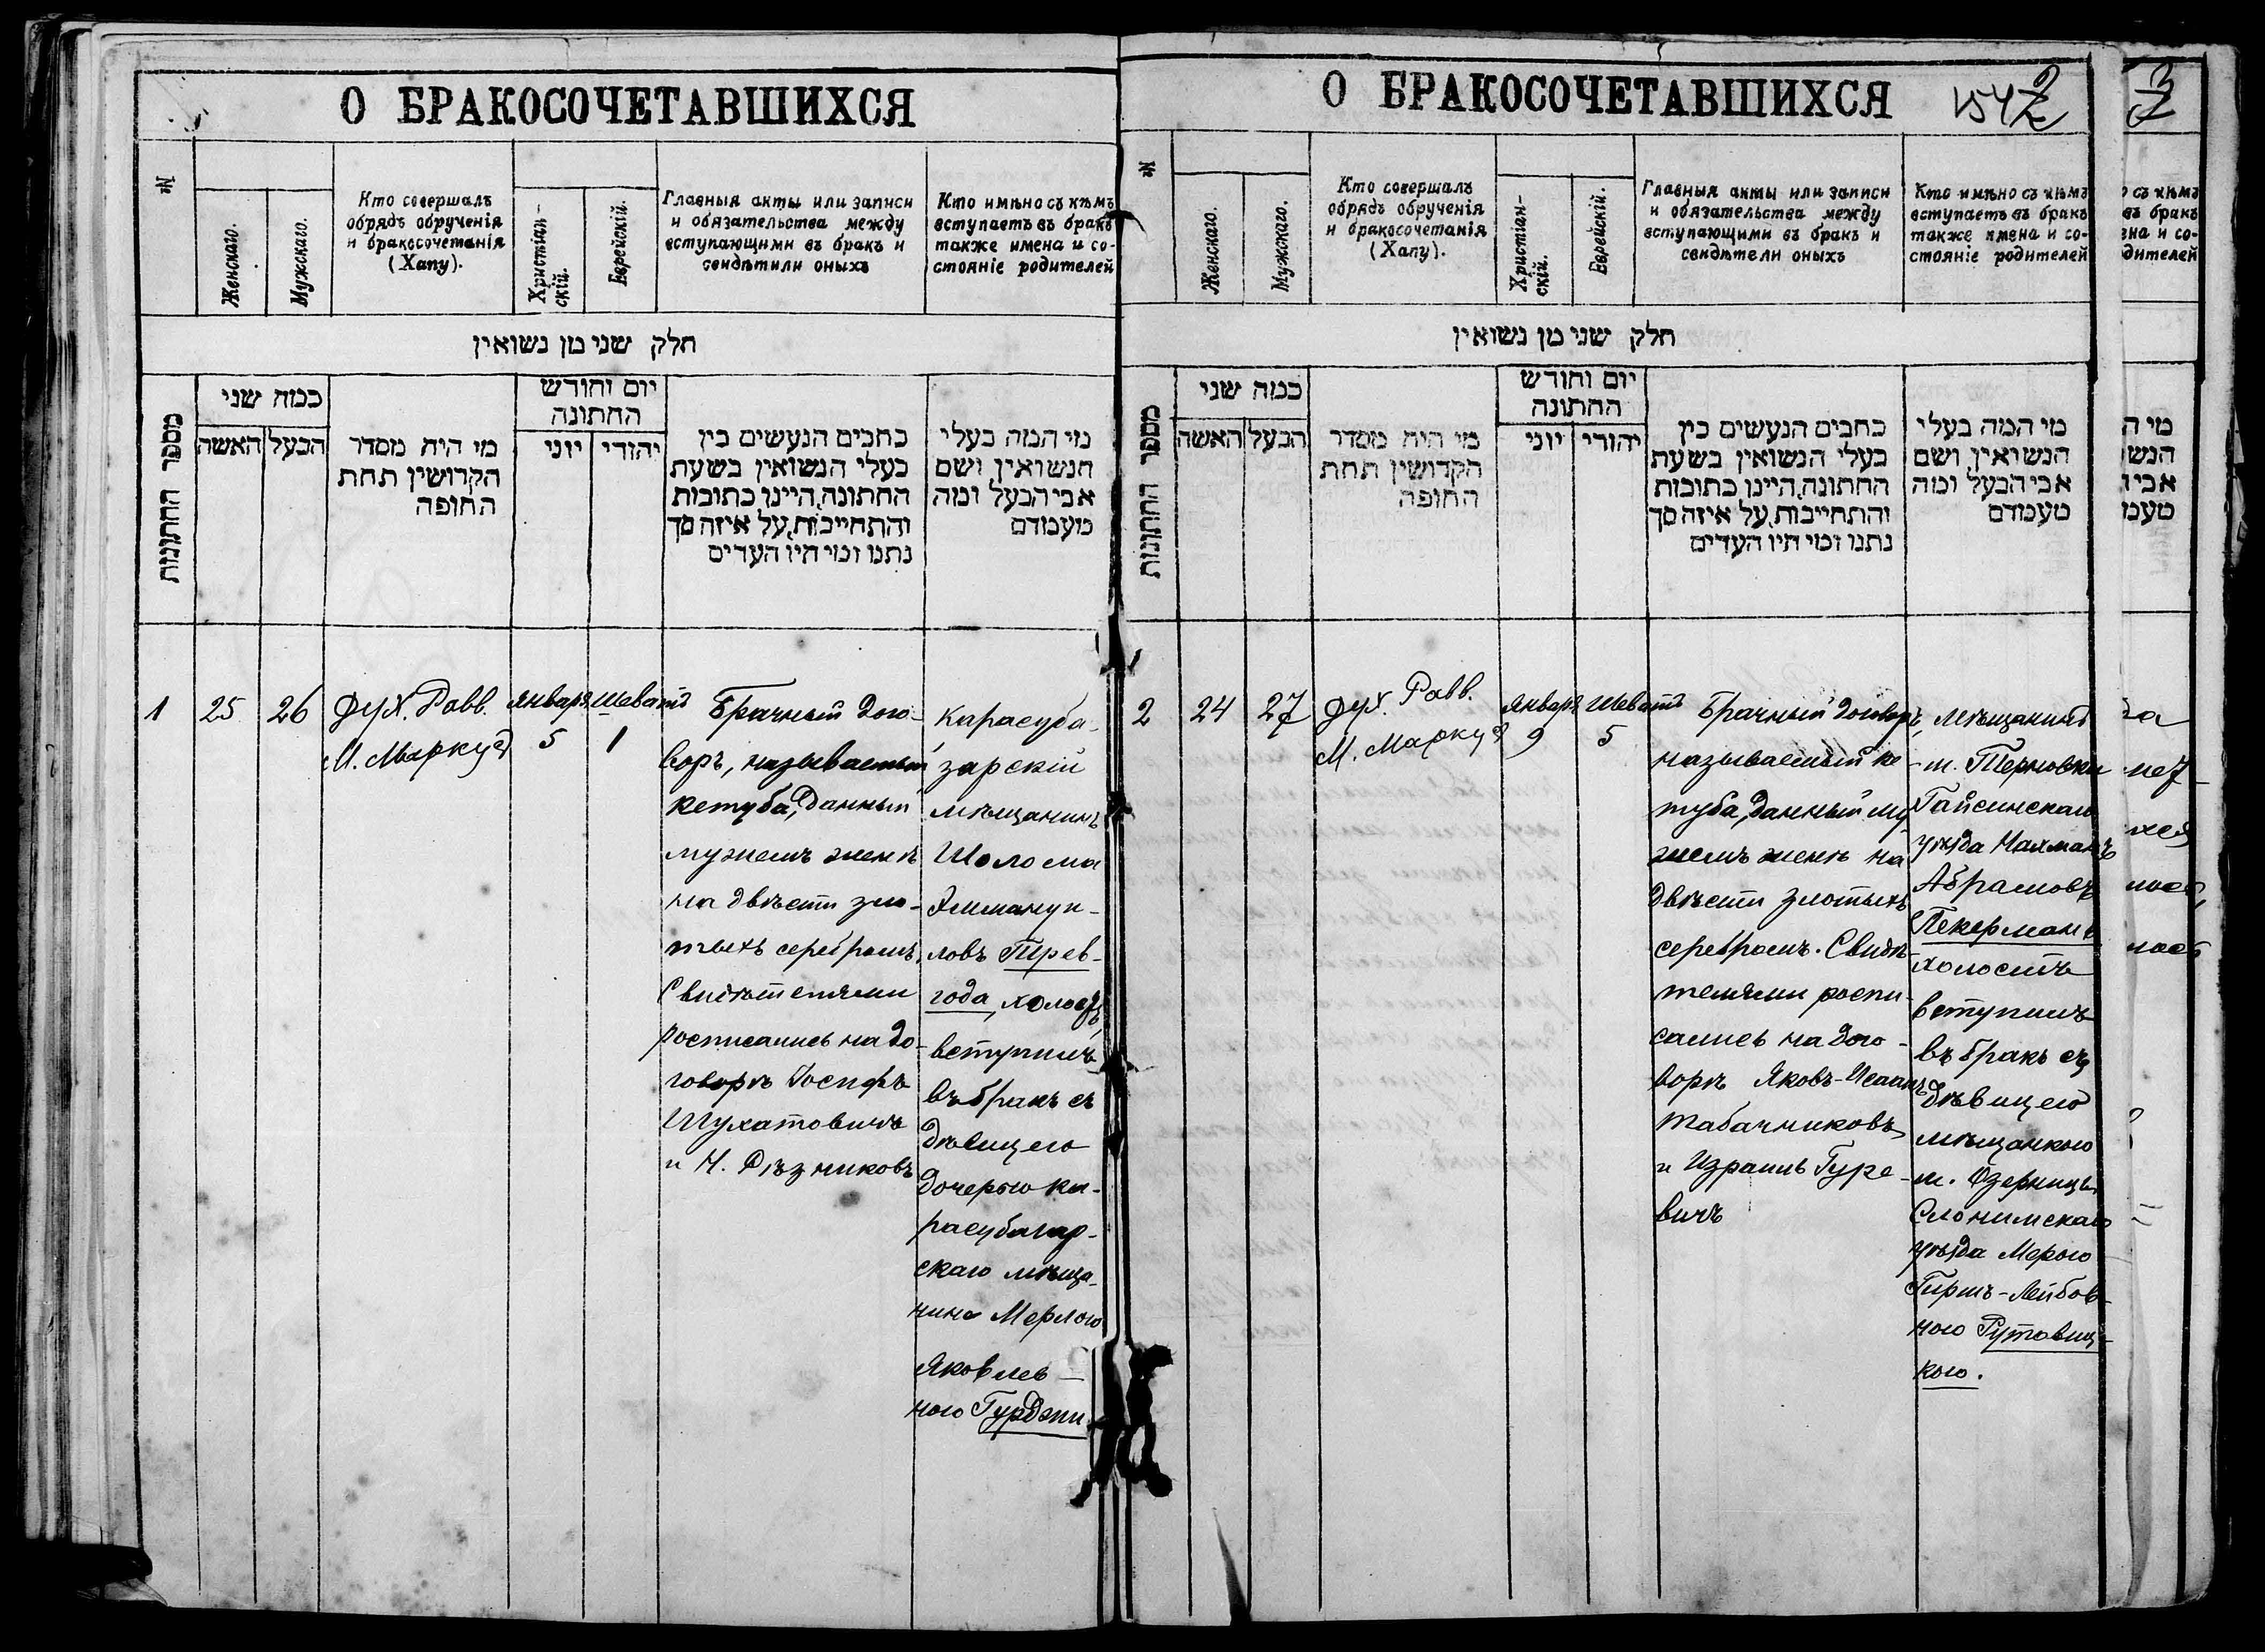 О БРАКОСОЧЕТАВШИХСЯ
№
Женскаго.
Мужскаго.
Кто совершалъ
обрядъ обрученія
и бракосочетанія
(Хапу).
Христіан-
скій.
Еврейскій.
Главныя акты или записи
и обязательства между
вступающими въ бракъ и
свидѣтили оныхъ
Кто имѣно съ кѣмъ
вступаетъ въ бракъ
также имена и со-
стояніе родителей
חלק שני מן נשואין
מספר החתונות
כמה שני
האשה
הבעל
מי היה מסדר
הקדושין תחת
החופה
יום וחודש
החתונה
יוני
יהודי
כתבים הנעשים בין
בעלי הנשואין בשעת
החתונה, היינו כתובות
והתחייבות, על איזה סך
נתנו ומי היו העדים
מי המה בעלי
הנשואין ושם
אבי הבעל ומה
מעמדם
1
25
26
Дух. Равв.
М. Маркусъ
Января
5
Шеватъ
1
Брачный дого-
воръ, называемый
кетуба, данный
мужемъ женѣ
на двѣсти зло-
тыхъ серебромъ.
Свидѣтелями
росписались на до-
говорѣ Іосифъ
Шухатовичъ
и Н. Рѣзниковъ
Карасуба-
зарскій
мѣщанинъ
Шолома
Эммануи-
ловъ Пгрев-
года, холостъ,
вступилъ
въ бракъ съ
дѣвицею
дочерью ка-
расубазар-
скаго мѣща-
нина Мерлою
Яковлев-
ною Гурджи
О БРАКОСОЧЕТАВШИХСЯ
154 2
№
Женскаго.
Мужскаго.
Кто совершалъ
обрядъ обрученія
и бракосочетанія
(Хапу).
Христіан-
скій.
Еврейскій.
Главныя акты или записи
и обязательства между
вступающими въ бракъ и
свидѣтели оныхъ
Кто имѣно съ кѣмъ
вступаетъ въ бракъ
также имена и со-
стояніе родителей
חלק שני מן נשואין
מספר החתונות
כמה שני
האשה
הבעל
מי היה מסדר
הקדושין תחת
החופה
יום וחודש
החתונה
יוני
יהודי
כתבים הנעשים בין
בעלי הנשואין בשעת
החתונה, היינו כתובות
והתחייבות, על איזה סך
נתנו ומי היו העדים
מי המה בעלי
הנשואין ושם
אבי הבעל ומה
מעמדם
2
24
27
Дух. Равв.
М. Маркусъ
Январь
9
Шеватъ
5
Брачный договоръ,
называемый ке
туба, данный му
жемъ женѣ на
двѣсти злотыхъ
серебромъ. Свидѣ-
телями роспи-
сались на дого-
ворѣ Яковъ-Исаакъ
Табачниковъ
и Израиль Гуре-
вичъ
мѣщанинъ
м. Терновки
Гайсинскаго
уѣзда Нахманъ
Абрамовъ
Пекерманъ
холостъ
вступилъ
въ бракъ съ
дѣвицею
мѣщанкою
м. Озерницы
Слонимскаго
уѣзда Мерою
Гиршъ-Лейбов-
ною Рутовиц-
кою.
3
съ кѣмъ
въ бракъ
на и со-
дителей